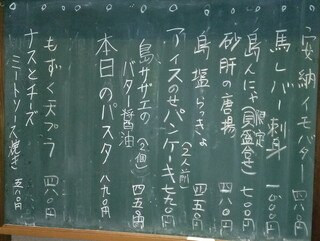 安納イモバター 四八〇
馬レバー刺身 一、〇〇〇
島んにゃ(貝盛合せ)限定 七〇〇
砂肝の唐揚 四八〇
島塩らっきょ 四五〇
アイスのせパンケーキ(2人前)七九〇
島サザエの
バター醤油(2個)四五〇
本日のパスタ 八九〇
もずく天プラ 四八〇
ナスとチーズ
ミートソース焼き 五八〇